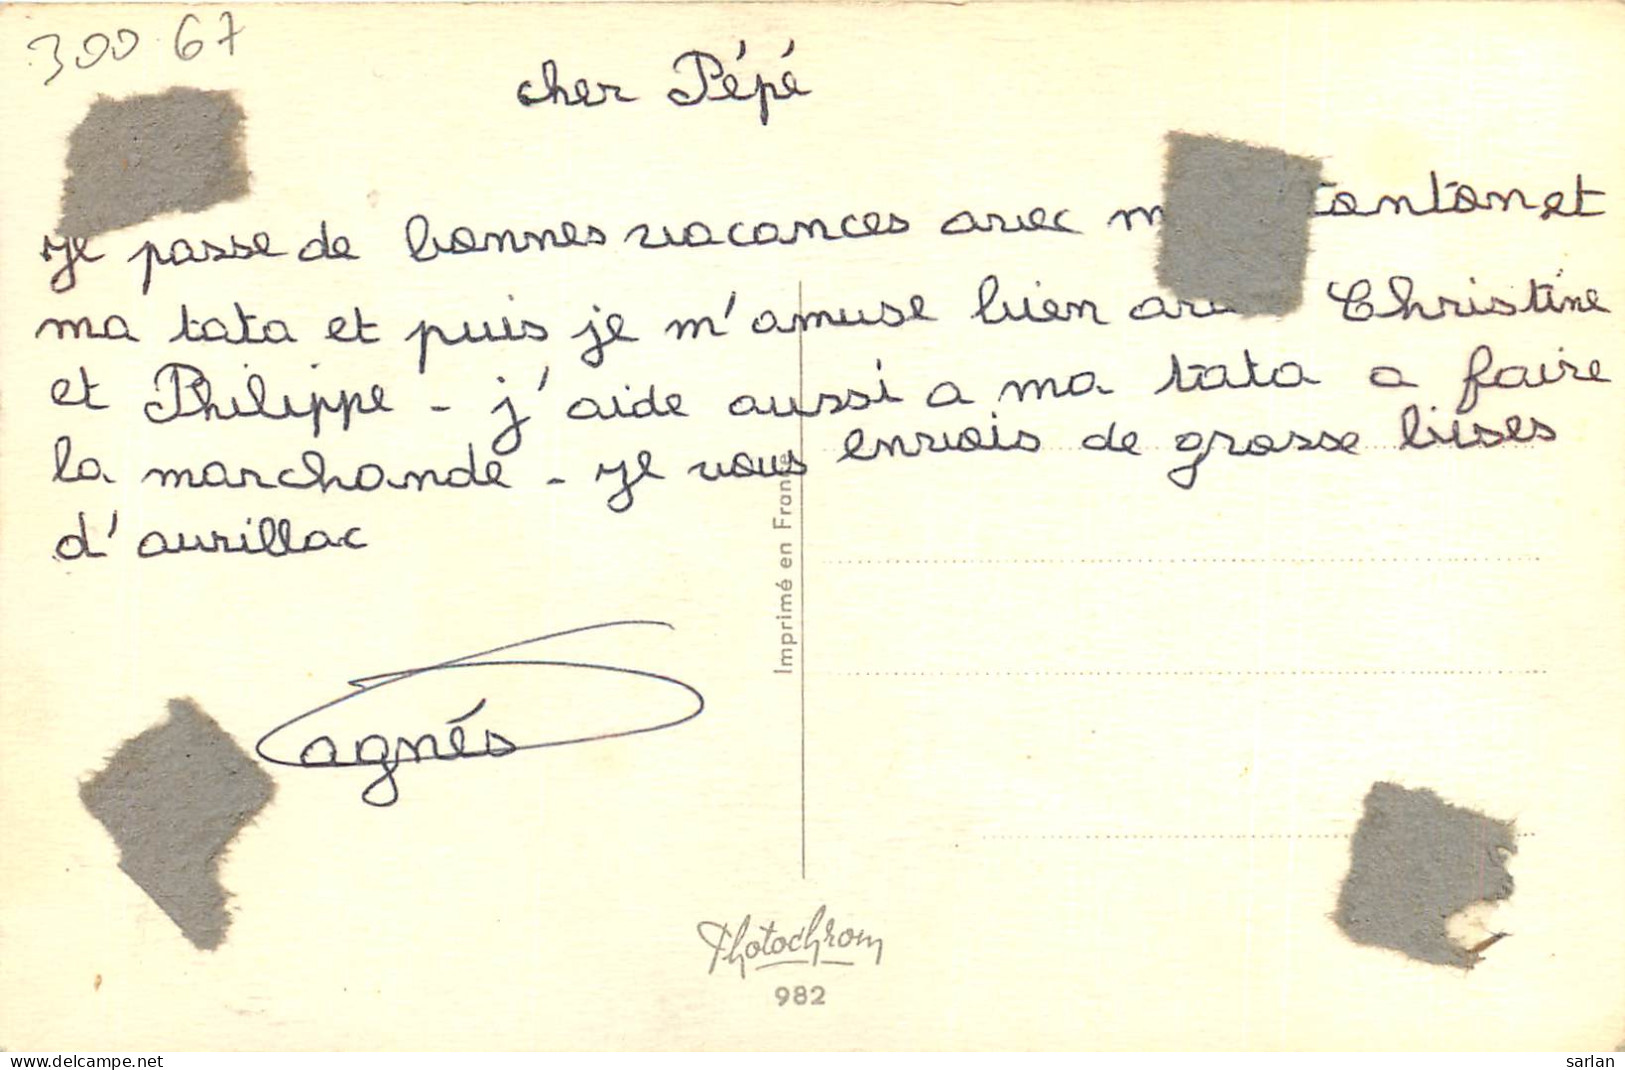 300 67
cher Pépé
Je passe de bonnes vacances avec tonton et
ma tata et puis je m'amuse bien Christine
et Philippe - j'aide aussi a ma tata a faire
la marchande - Je vous envois de grosse bises
d'aurillac
agnés
Imprimé en France
Photochrom
982
www.delcampe.net
sarlan